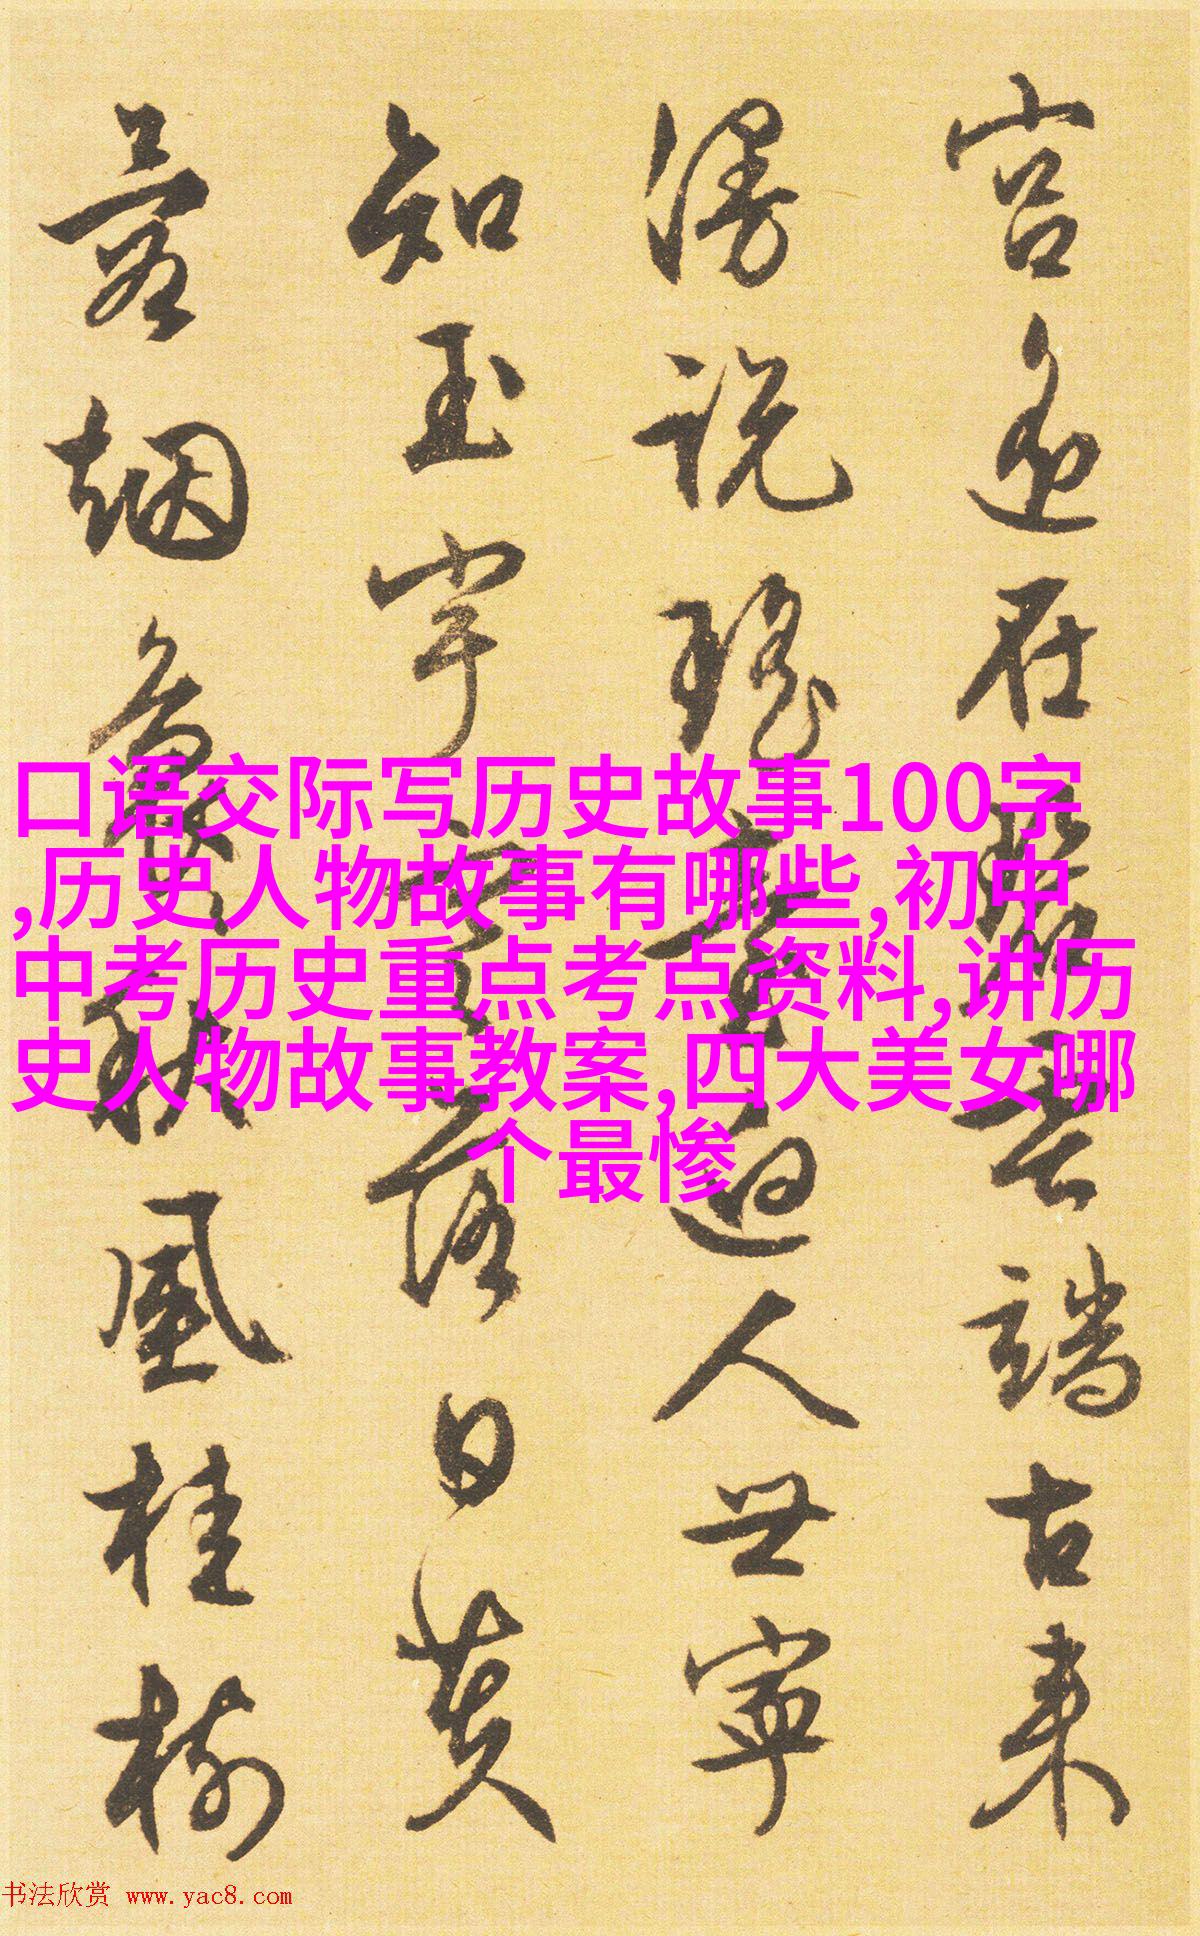 口语交际写历史故事100字
,历史人物故事有哪些,初中
中考历史重点考点资料,讲历
史人物故事教案,四大美女哪
个最惨
宫在碧云端古来
漫说瑶台迥人世寧
知玉宇落日黄
烟秋风桂树
书法欣赏 www.yac8.com